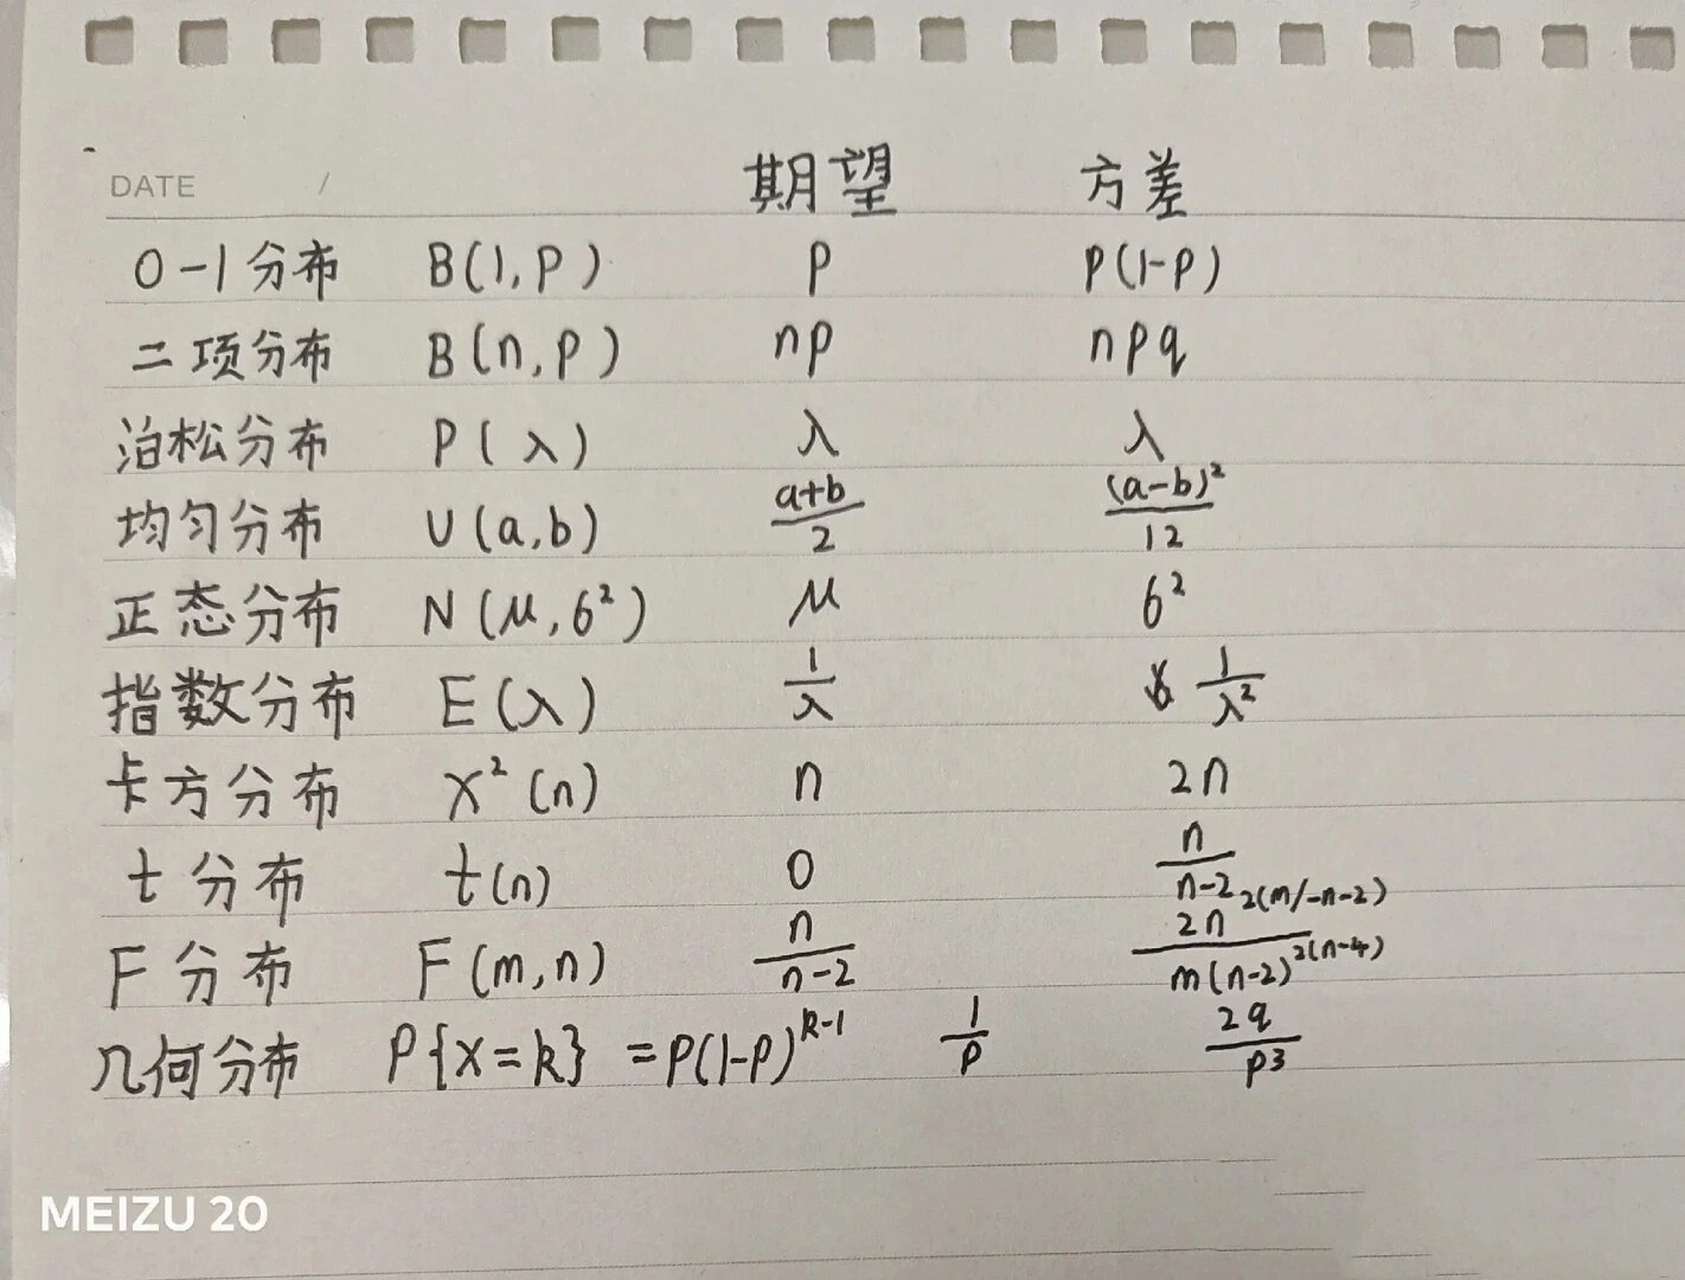 DATE /
期望 方差
0-1分布 B(1,P) P P(1-P)
二项分布 B(n,P) np npq
泊松分布 P(λ) λ λ
均匀分布 U(a,b) \frac{a+b}{2} \frac{(a-b)²}{12}
正态分布 N(μ,6²) μ 6²
指数分布 E(λ) \frac{1}{λ} \frac{1}{λ²}
卡方分布 X²(n) n 2n
t分布 t(n) 0 \frac{n}{n-2}
2(m/-n-2)
F分布 F(m,n) \frac{n}{n-2} \frac{2n}{m(n-2)^{2(n-4)}}
几何分布 P{X=k} =P(1-P)^{k-1} \frac{1}{P} \frac{2q}{P3}
MEIZU 20